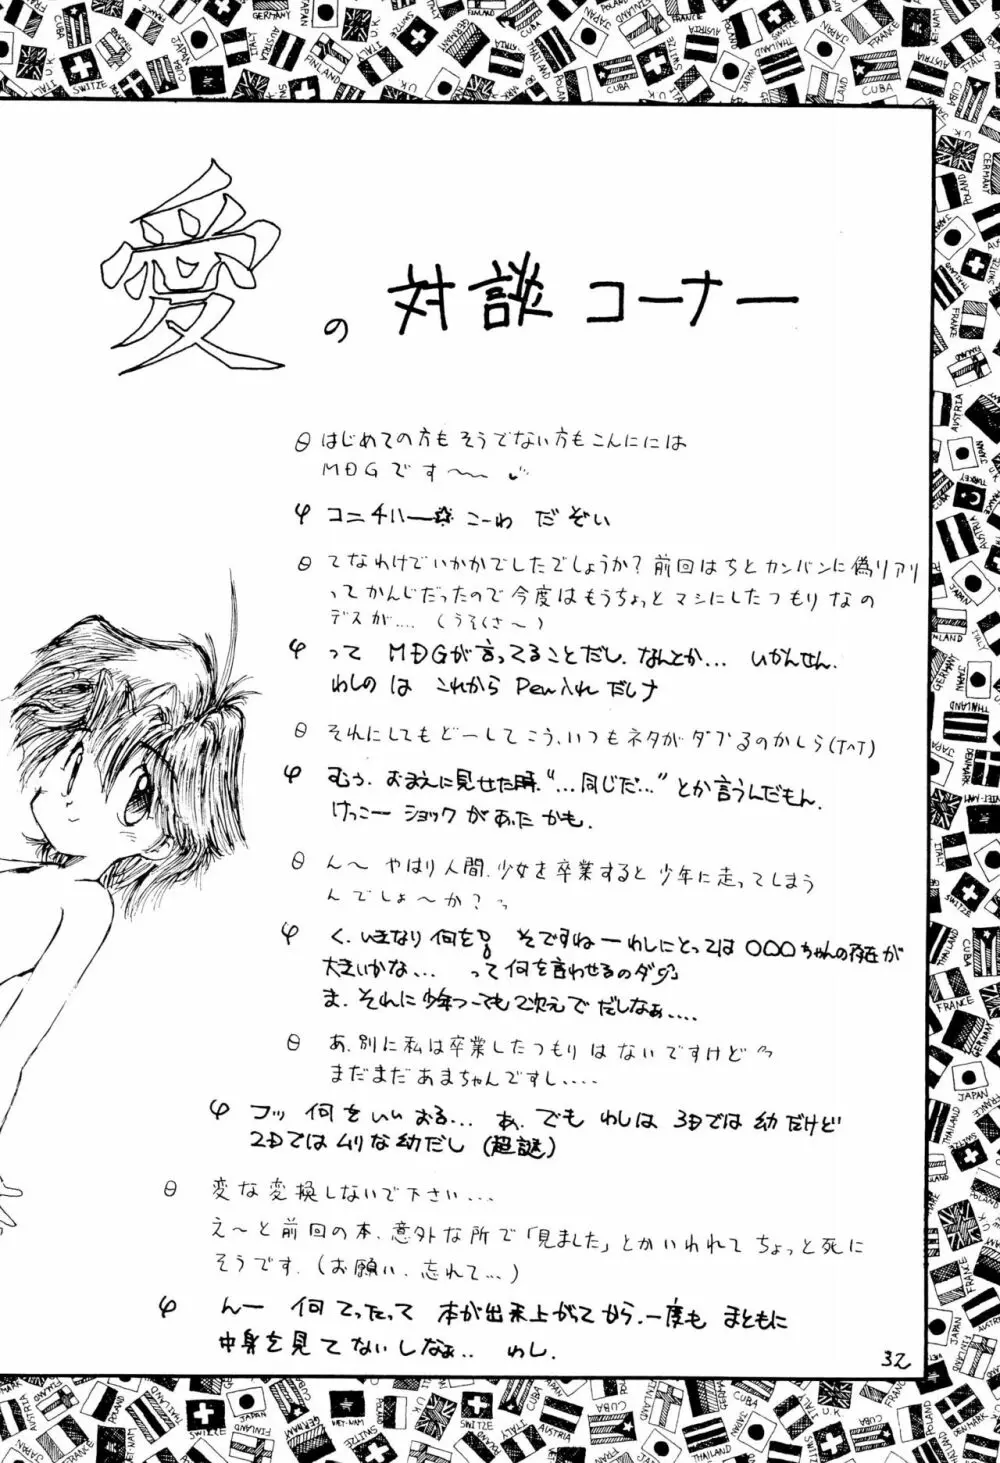 愛の 対談コーナー
θ はじめての方もそうでない方もこんにには
MDGです〜〜
φ コニチハー☆ こーわ だぞい
θ てなわけでいかかでしたでしょうか?前回はちとカンバンに偽りアリ
ってかんじだったので今度はもうちょっとマシにしたつもりなの
デスが.... (うそくさ〜)
φ って MDGが言ってることだし、なんとか... いかんせん、
わしの は これから Pen入れ だしナ
θ それにしてもどーしてこう、いつもネタがダブるのかしら(T^T)
φ むう、おまえに見せた時、“...同じだ...”とか言うんだもん、
けっこー ショックがあったかも、
θ ん〜 やはり人間、少女を卒業すると少年に走ってしまう
んでしょ〜か?
φ く、いきなり何を! そですねーわしにとっては○○○ちゃんの存在が
大きいかな.... って何を言わせるのダ
ま、それに少年つっても2次元でだしなぁ....
θ あ、別に私は卒業したつもりはないですけど
まだまだあまちゃんですし....
φ コッ 何をいいおる... あ、でも わしは 3Dでは幼だけど
2Dではムリな幼だし(超謎)
θ 変な変換しないで下さい...
え〜と前回の本、意外な所で「見ました」とかいわれてちょっと死に
そうです、(お願い、忘れて...)
φ んー 何てったって 本が出来上がってから、一度も まともに
中身を見てないしなぁ... わし、
32
GERMANY
JAPAN
FRANCE
ITALY
SWITZE
CUBA
U.K
FINLAND
AUSTRIA
THAILAND
POLAND
TURKEY
DENMARK
VIET-NAM